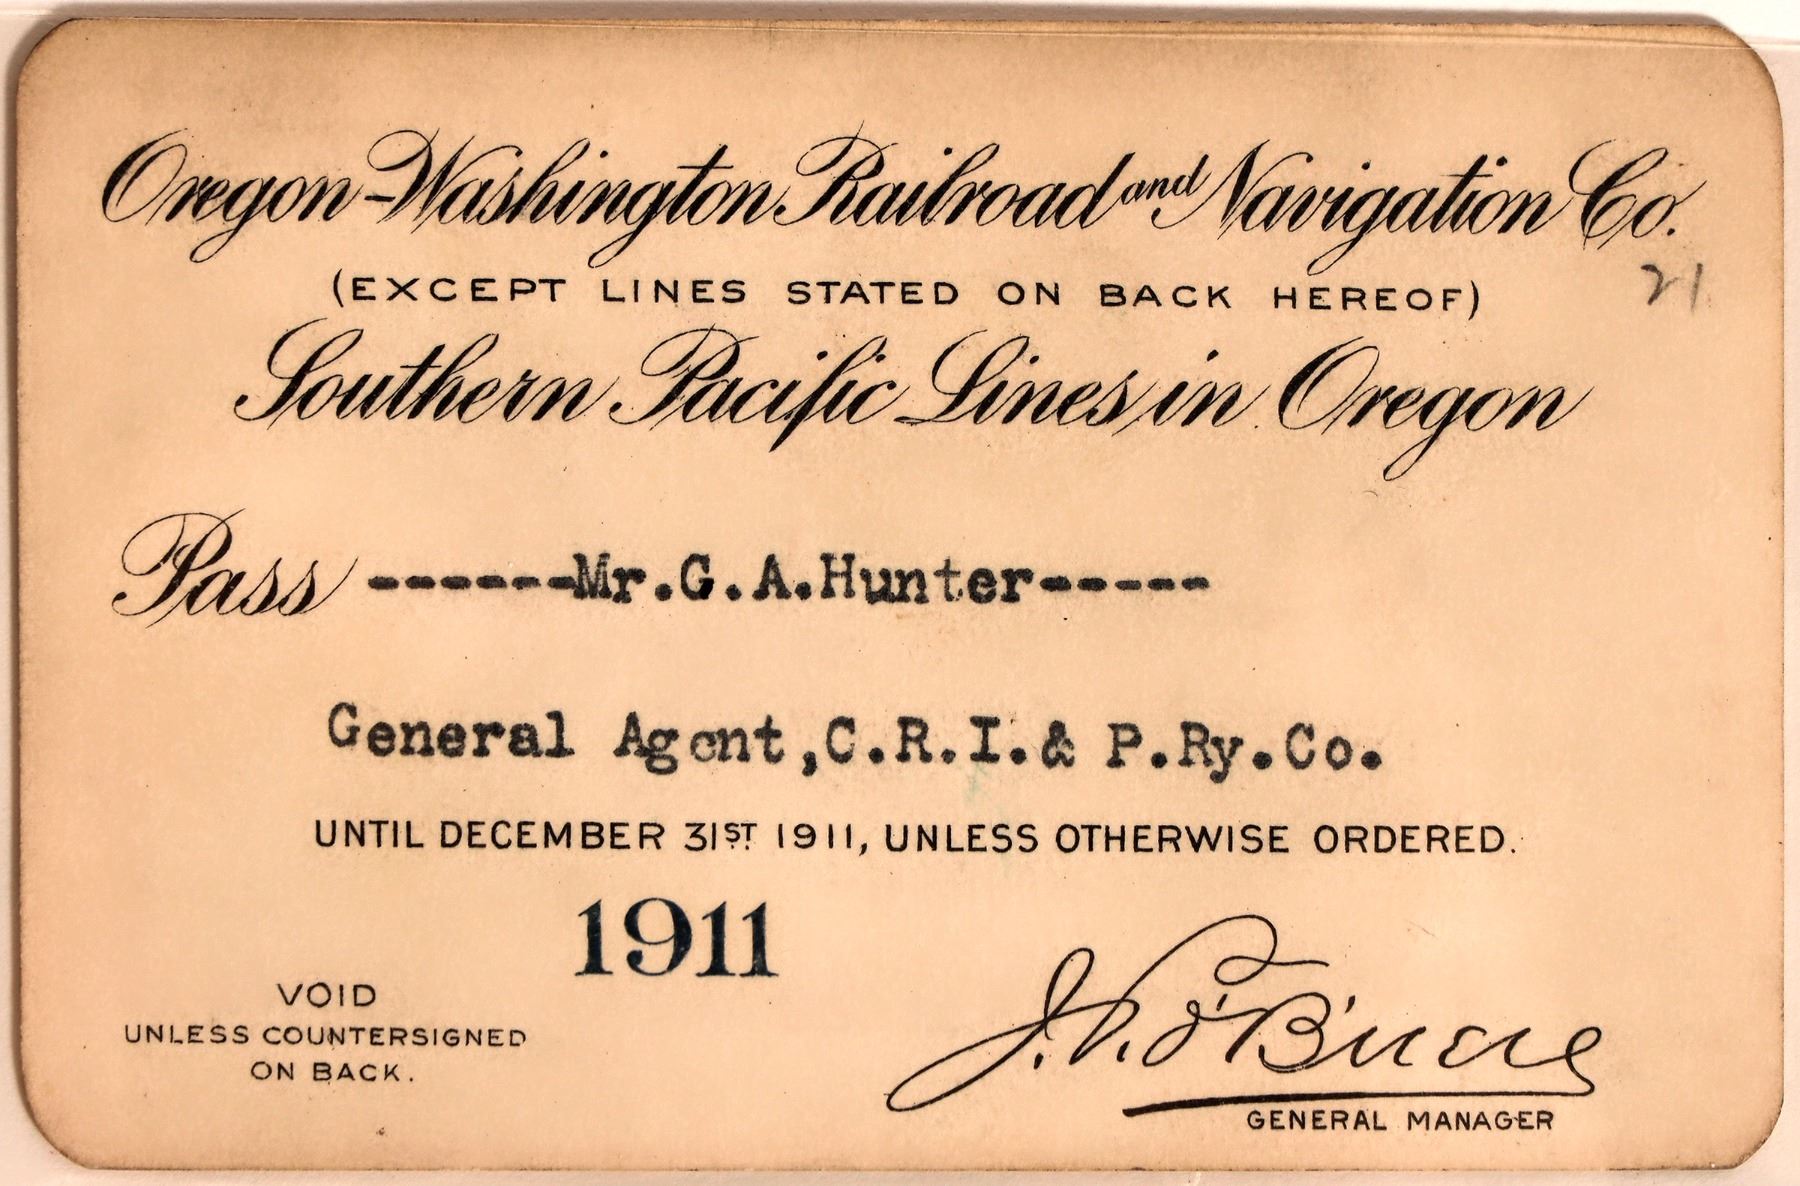 Oregon-Washington Railroad and Navigation Co.
(EXCEPT LINES STATED ON BACK HEREOF)
21
Southern Pacific Lines in Oregon
Pass ------Mr.G.A.Hunter-----
General Agent,C.R.I.& P.Ry.Co.
UNTIL DECEMBER 31ST 1911, UNLESS OTHERWISE ORDERED.
1911
VOID
UNLESS COUNTERSIGNED
ON BACK.
J.P. O'Brien
GENERAL MANAGER